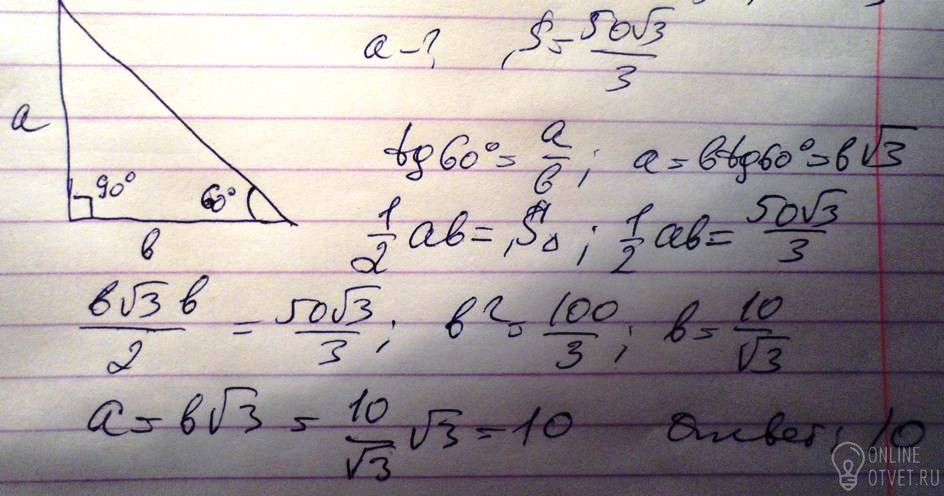 a-? S=50√3/3
a
90°
60°
в
tg60°=a/в; a=вtg60°=в√3
1/2 aв=S△; 1/2 aв=50√3/3
в√3 в/2 = 50√3/3; в²=100/3; в=10/√3
a=в√3 = 10/√3 √3=10 Ответ: 10
ONLINE
OTVET.RU